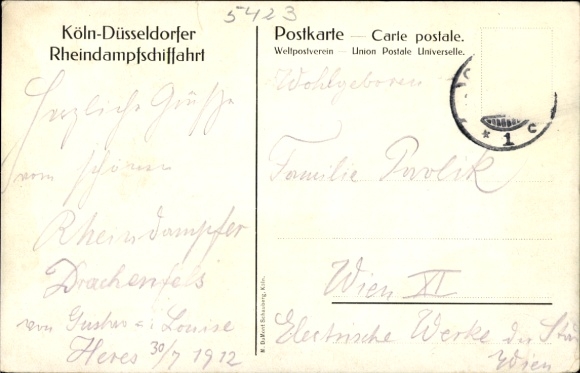 5423
Köln-Düsseldorfer
Rheindampfschiffahrt
Herzliche Grüße
vom schönen
Rheindampfer
Drachenfels
von Gustav u. Louise
Heres 30/7 1912
Postkarte — Carte postale.
Weltpostverein — Union Postale Universelle.
Wohlgeboren
Familie Pavlik
Wien XI
Electrische Werke der
Wien
M. DuMont Schauberg, Köln.
* 1 c